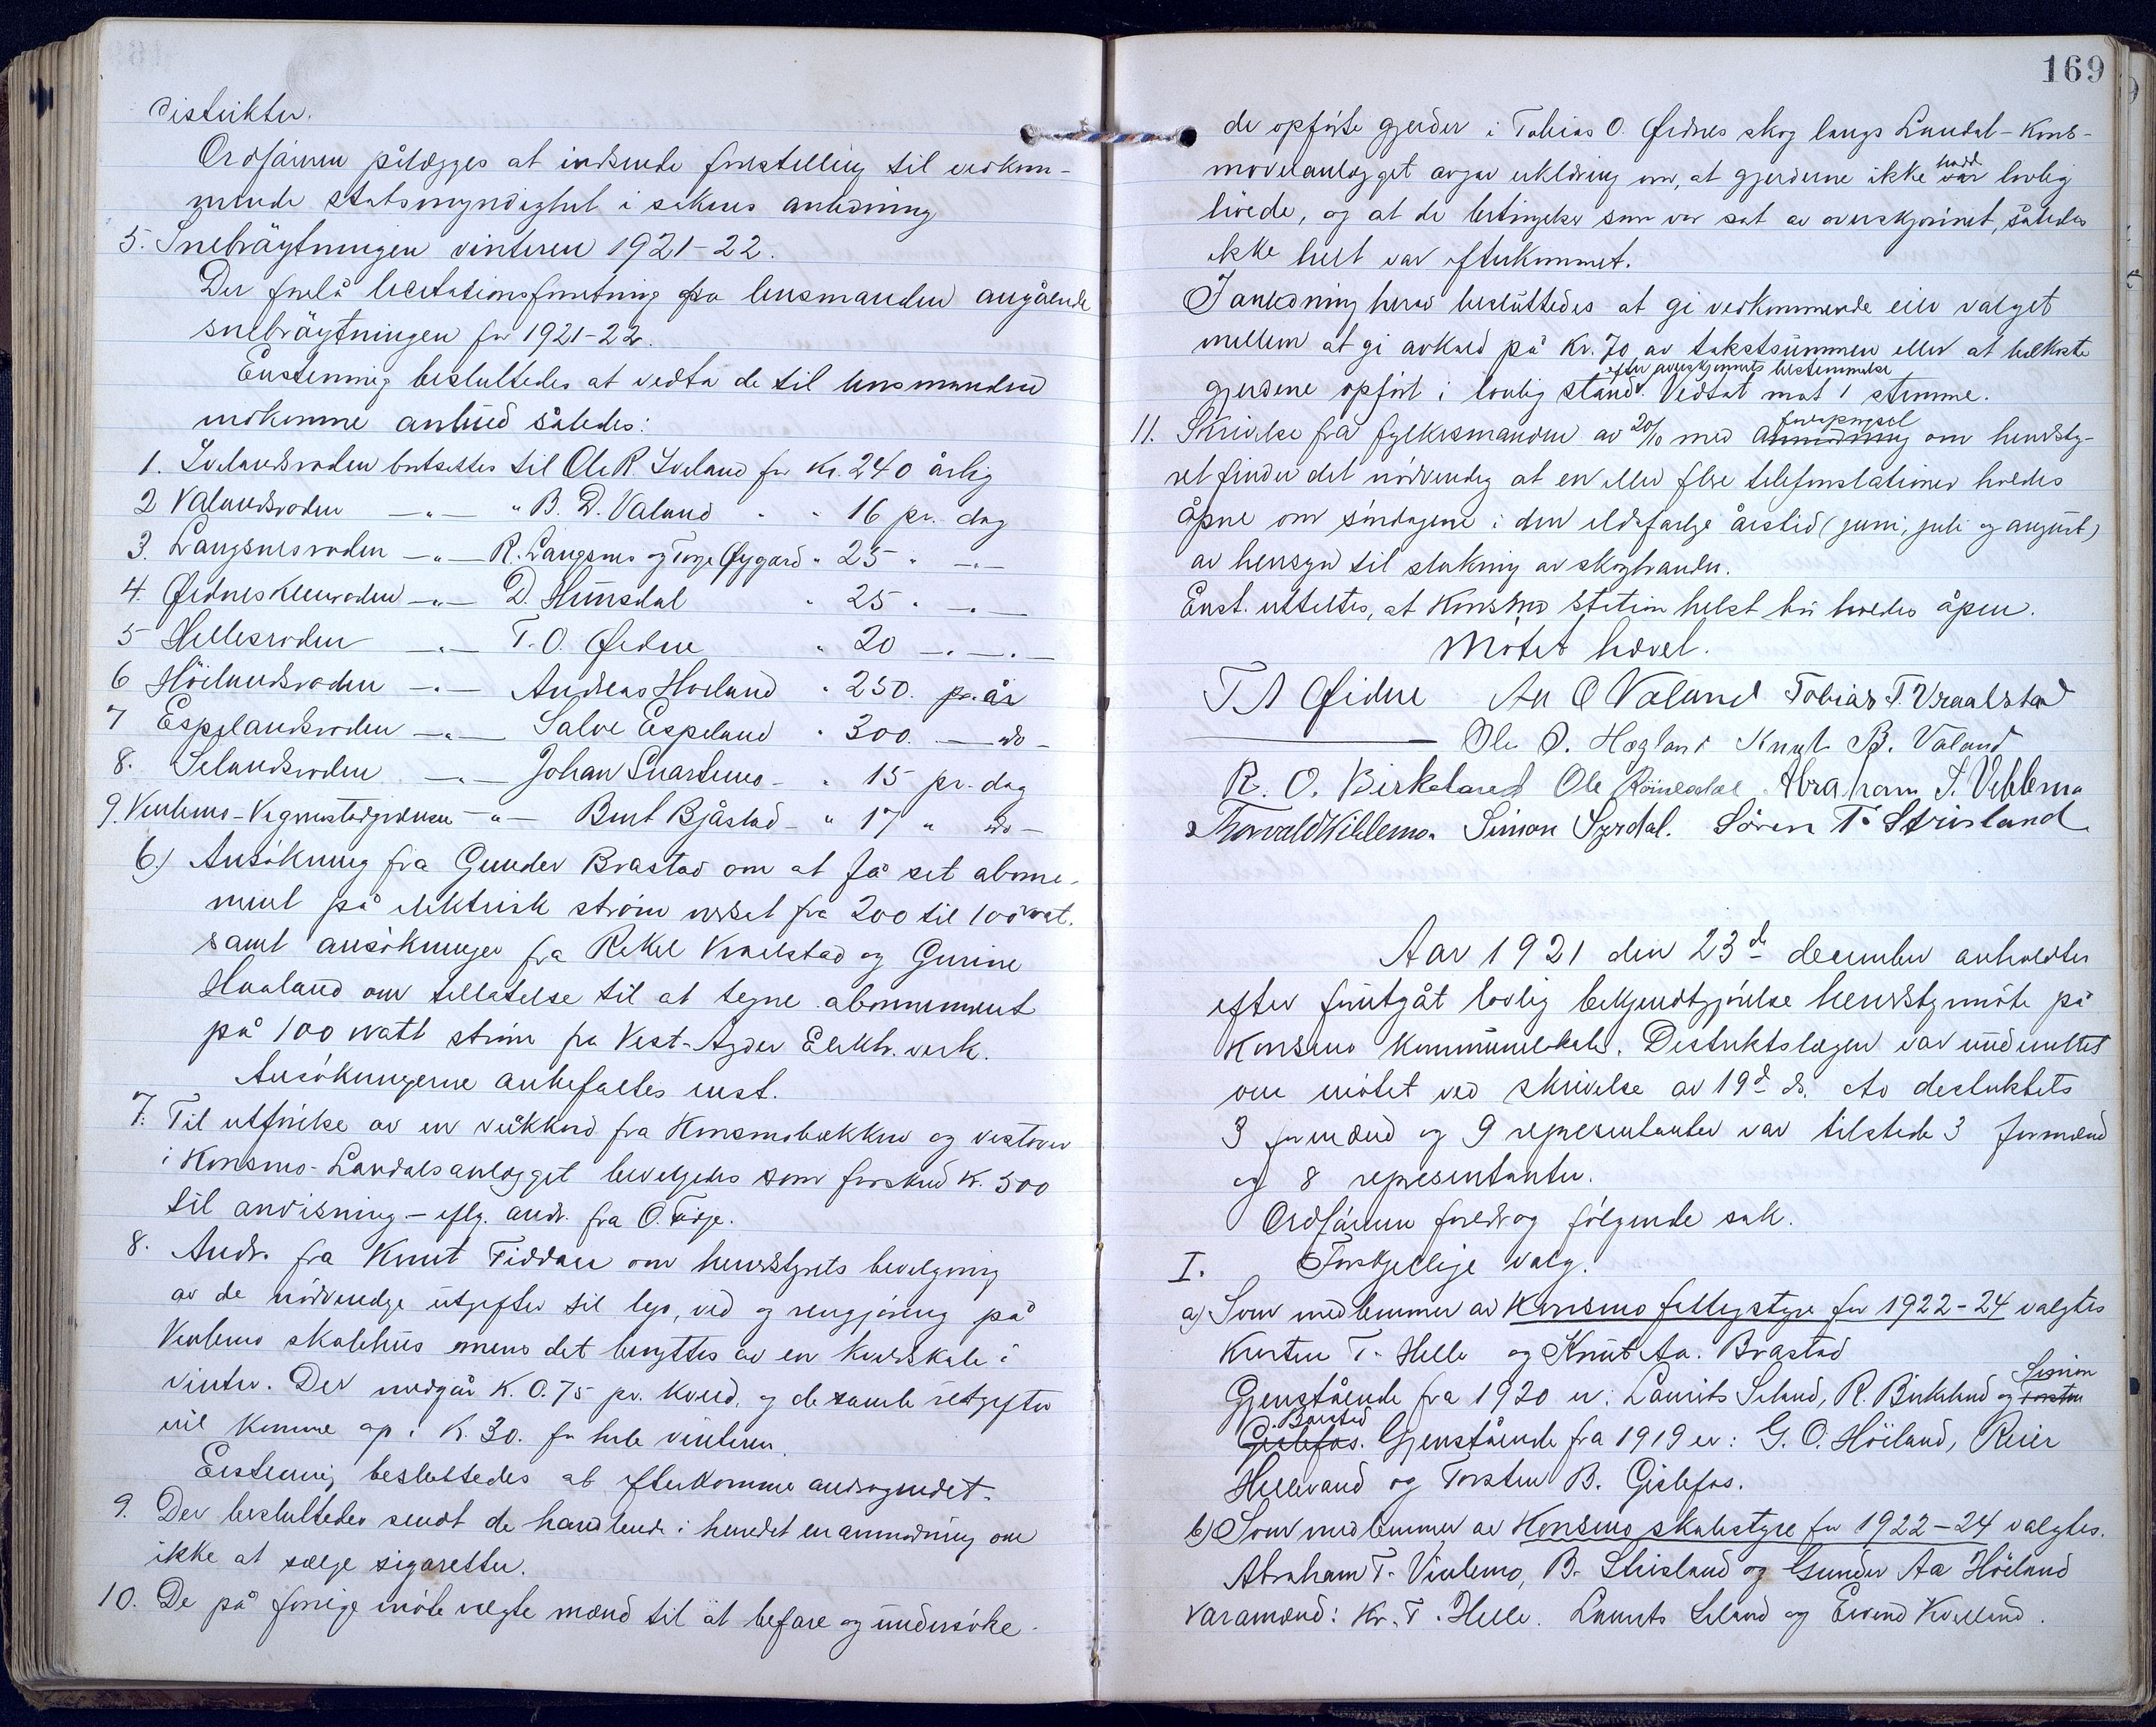 distrikter.
Ordføreren pålægges at indsende forestilling til vedkom-
mende statsmyndighet i sakens anledning
5. Snebröytningen vinteren 1921-22.
Der forelå licitationsforretning fra lensmanden angående
snebröytningen for 1921-22.
Enstemmig besluttedes at vedta de til lensmanden
indkomne anbud således:
1. Ivelandsroden bortsettes til Ole R. Iveland for Kr. 240 årlig
2 Valandsroden —"— " B. D. Valand " " 16 pr. dag
3. Langsnesroden —"— R. Langsnes og Terje Øygard " 25 " —"—
4. Ødneskleivroden —"— D. Hunsdal " 25 " —"—
5 Hellesroden —"— T. O. Ødne " 20 —"—"—
6 Höilandsroden —"— Andreas Høiland " 250. pr. år
7 Espelandsroden —"— Salve Espeland " 300. — do —
8. Selandsroden —"— Johan Snartemo - " 15 pr. dag
9. Viblemo-Vegmostadgrænsen —"— Bent Bjåstad - " 17 " do —
6.) Ansökning fra Gunder Brastad om at få sit abone-
ment på elektrisk ström nedsat fra 200 til 100 wat.
samt ansökninger fra Rakel Vraalstad og Gurine
Haaland om tillatelse til at tegne abonnement
på 100 watt ström fra Vest-Agder Elektr. verk.
Ansökningerne anbefaltes enst.
7. Til utförelse av en veikkend fra Konsmobækken og vestover
i Konsmo-Landalsanlægget beviljedes som forskud K. 500
til anvisning - eflg. andr. fra O. Terje.
8. Andr. fra Knut Fiddan om herredstyrets bevilgning
av de nödvendige utgifter til lys, ved og rengjöring på
Viblemo skolehus mens det benyttes av en kveldskole i
vinter. Der medgår K. 0.75 pr. kveld, og de samlede utgifter
vil komme op i K. 30. for hele vinteren.
Enstemmig besluttedes at efterkomme andragendet.
9. Der besluttedes sendt de handlende i herredet en anmodning om
ikke at sælge sigaretter.
10. De på forrige möte valgte mænd til at befare og undersöke
169
de opförte gjerder i Tobias O. Ødnes skog langs Laudal-Kons-
moveianlægget avgav erklæring om, at gjerderne ikke var hadd lovlig
höide, og at de betingelser som var sat av overskjönnet, således
ikke helt var efterkommet.
I anledning herav besluttedes at gi vedkommende eier valget
mellem at gi avkald på Kr. 70 av takstsummen eller at bekoste
efter overskjönnets bestemmelse
gjerdene opfört i lovlig stand. Vedtat mot 1 stemme.
forespørsel
11. Skrivelse fra fylkesmanden av 20/10 med anmodning om herredsty-
ret finder det nödvendig at en eller flere telefonstationer holdes
åpne om söndagene i den ildsfarlige årstid (juni, juli og august)
av hensyn til slukning av skogbrander.
Enst. uttaltes, at Konsmo station helst bör holdes åpen.
Mötet hævet.
T A Øidne An O Valand Tobias T. Vraalstad
Ole O. Hægland Knut B. Valand
R. O. Birkeland Ole Römesdal Abraham T. Viblemo
Thorvald Viblemo. Simon Syrdal. Sören T. Strisland
Aar 1921 den 23de december avholdtes
efter forutgåt lovlig bekjendtgjörelse herredstyrmöte på
Konsmo kommunelokale. Distriktslægen var underrettet
om mötet ved skrivelse av 19de ds. Av distriktets
3 formænd og 9 representanter var tilstede 3 formænd
og 8 representanter.
Ordføreren foredrog fölgende sak.
I. Forskjellige valg.
a) Som medlemmer av Konsmo fattigstyre for 1922-24 valgtes
Kersten T. Helle og Knut Aa. Brastad
Gjenstående fra 1920 er: Laurits Seland, R. Birkeland og Torsten Simon
Gislefos. Bårstad Gjenstående fra 1919 er: G. O. Höiland, Reier
Hellevand og Torsten B. Gislefos.
b) Som medlemmer av Konsmo skolestyre for 1922-24 valgtes.
Abraham T. Viblemo, B. Strisland og Gunder Aa Höiland
varamænd: Kr. T. Helle. Laurits Seland og Eivind Kvelland.